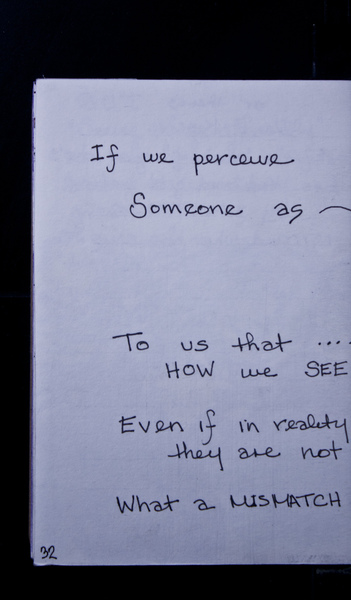 If we perceive
Someone as
To us that ...
HOW we SEE
Even if in reality
they are not
What a MISMATCH
32